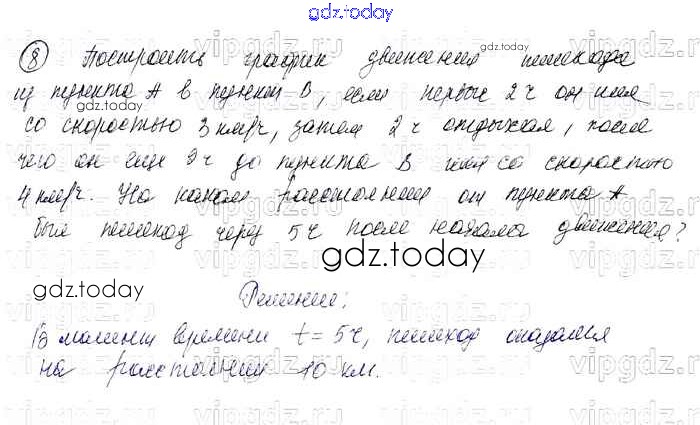 gdz.today
8 Построить график движения пешехода
из пункта А в пункт В, если первые 2 ч он шел
со скоростью 3 км/ч, затем 2 ч отдыхал, после
чего он еще 2 ч до пункта В шел со скоростью
4 км/ч. На каком расстоянии от пункта А
был пешеход через 5 ч после начала движения?
gdz.today
gdz.today
Решение:
В момент времени t = 5 ч, пешеход оказался
на расстоянии 10 км.